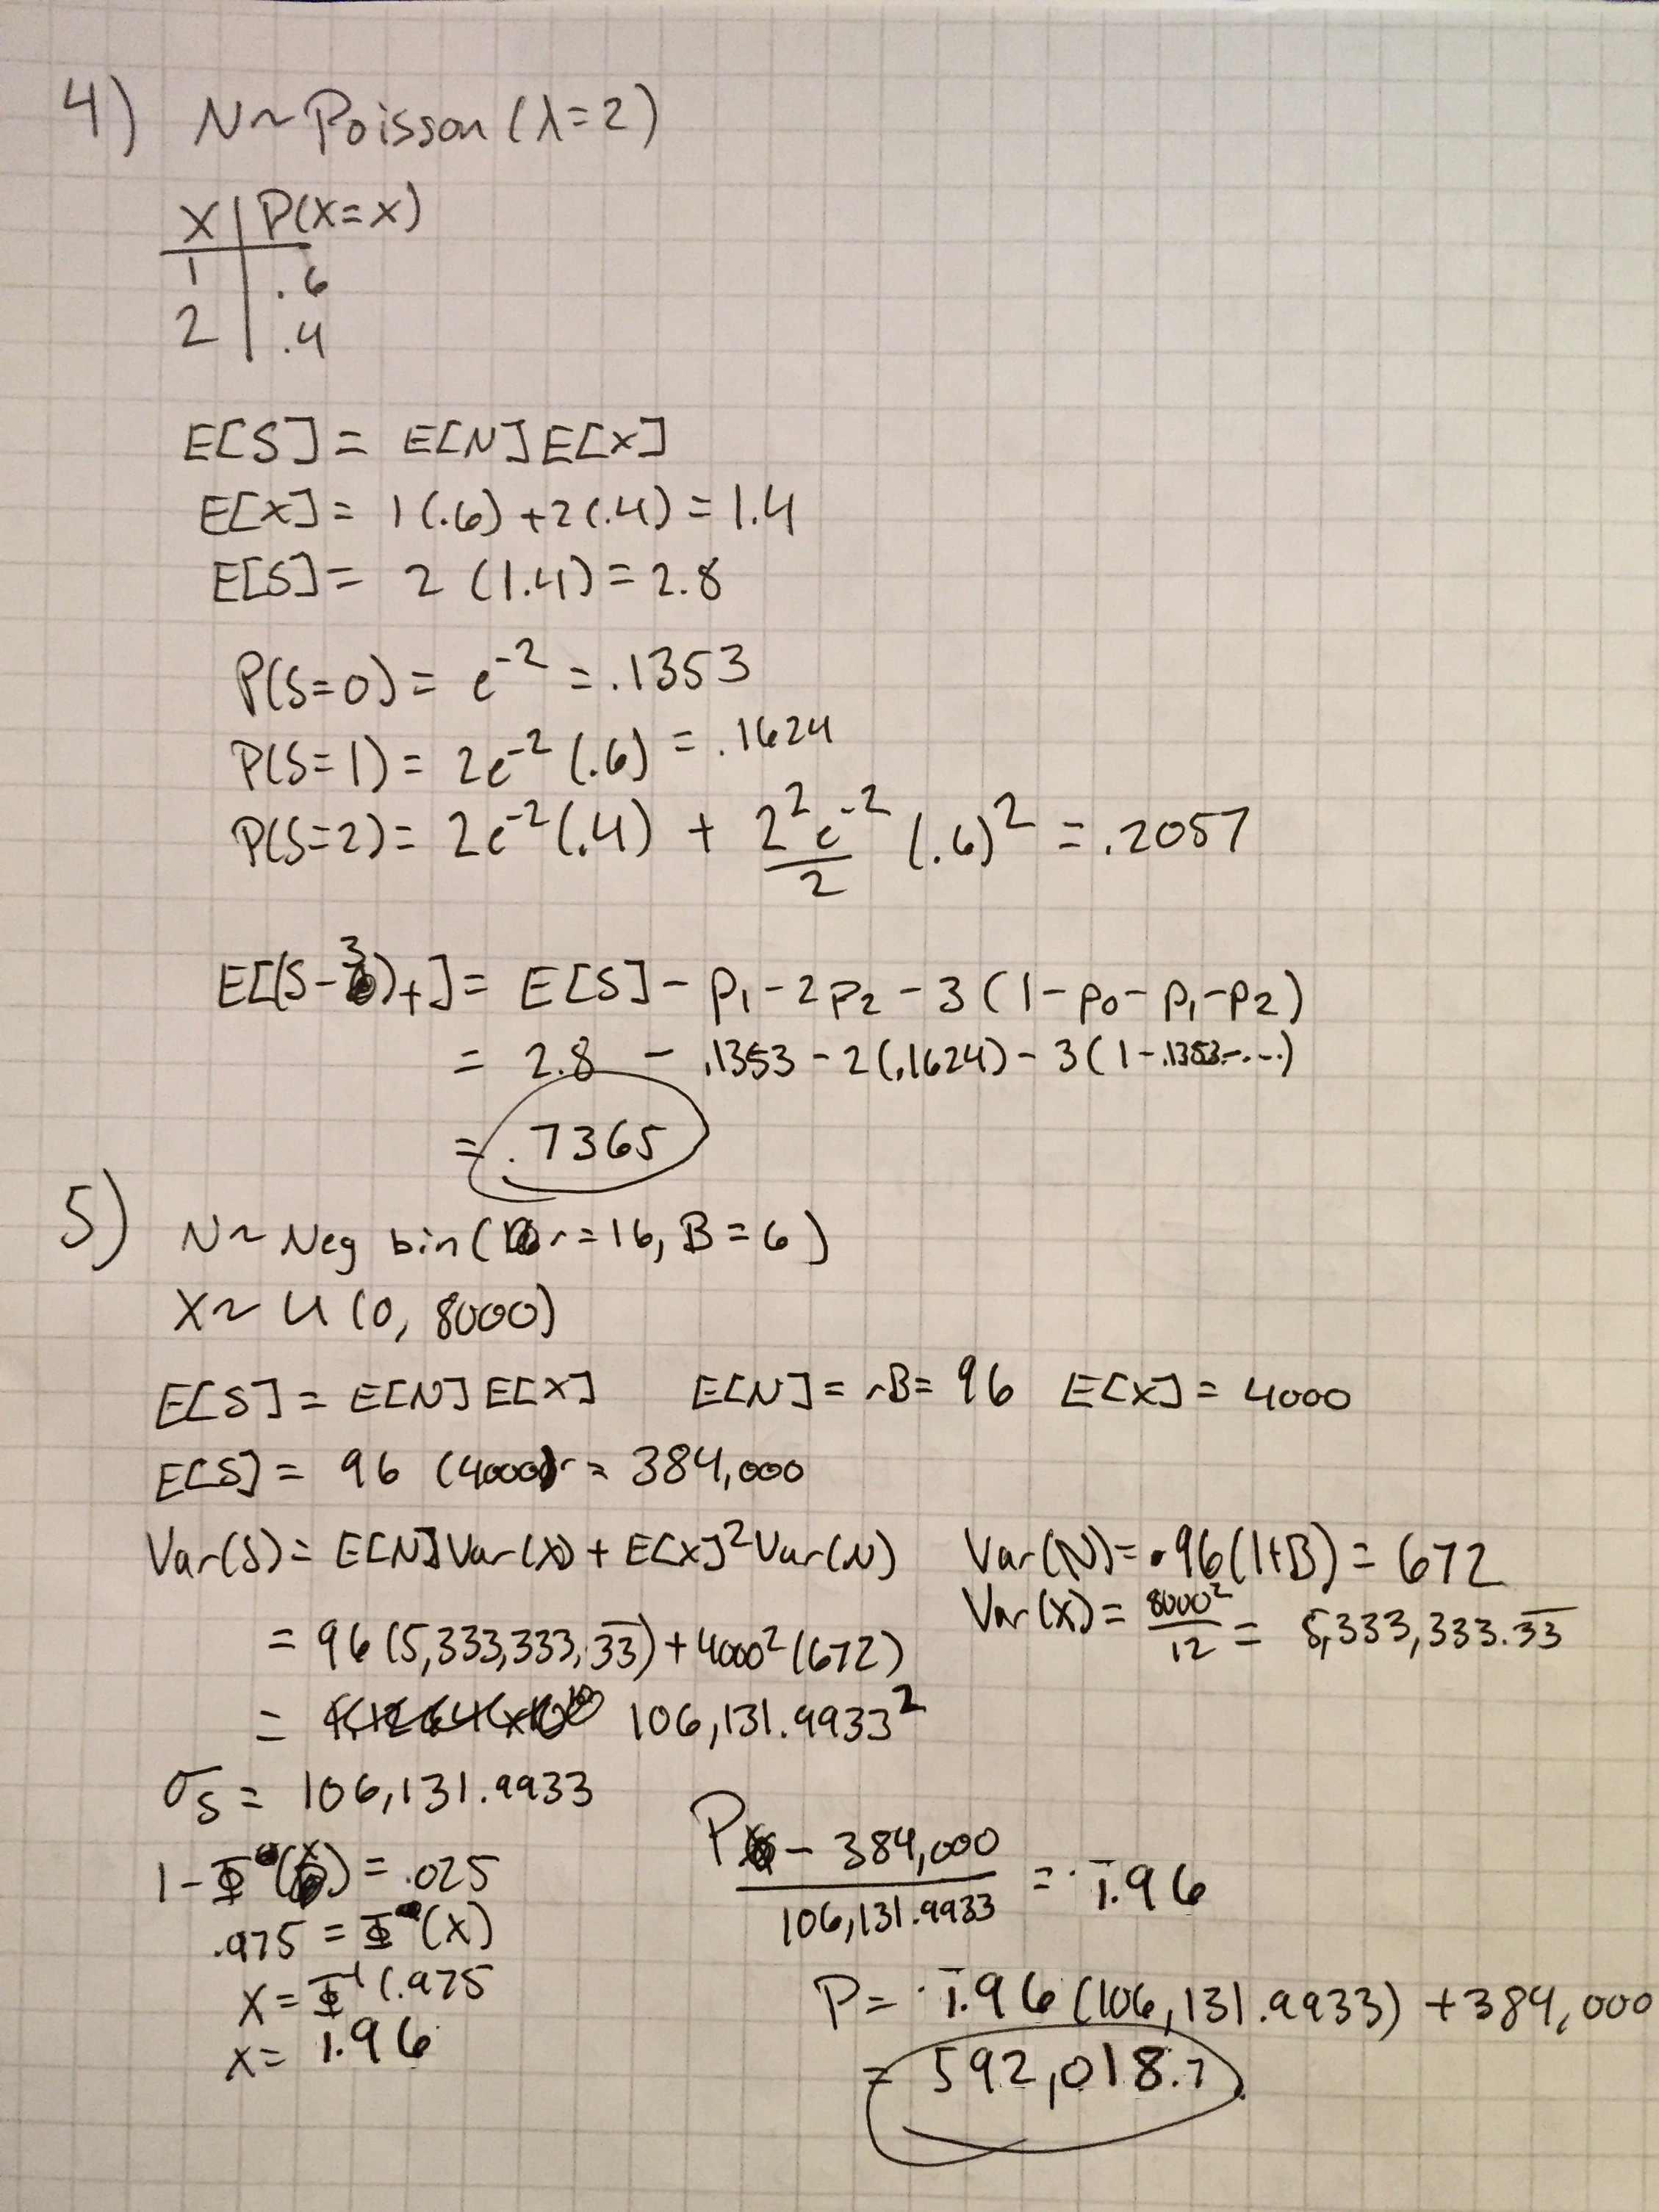 4) N~Poisson(λ=2)
X | P(X=x)
1 | .6
2 | .4
E[S] = E[N]E[X]
E[X] = 1(.6)+2(.4)=1.4
E[S] = 2(1.4)=2.8
P(S=0) = e^-2 = .1353
P(S=1) = 2e^-2(.6) = .1624
P(S=2) = 2e^-2(.4) + 2^2e^-2/2 (.6)^2 = .2057
E[(S-3)+] = E[S] - p1 - 2p2 - 3(1-p0-p1-p2)
= 2.8 - .1353 - 2(.1624) - 3(1-.1353-...)
= .7365
5) N~Neg bin(r=16, B=6)
X~U(0, 8000)
E[S] = E[N]E[X] E[N] = rB = 96 E[X] = 4000
E[S] = 96(4000) = 384,000
Var(S) = E[N]Var(X) + E[X]^2Var(N) Var(N) = 96(1+B) = 672
Var(X) = 8000^2/12 = 5,333,333.33
= 96(5,333,333.33) + 4000^2(672)
= 106,131.9933^2
σS = 106,131.9933
1-Φ(x) = .025
.975 = Φ(x)
x = Φ^-1(.975
x = 1.96
P - 384,000 / 106,131.9933 = 1.96
P = 1.96(106,131.9933) + 384,000
= 592,018.7